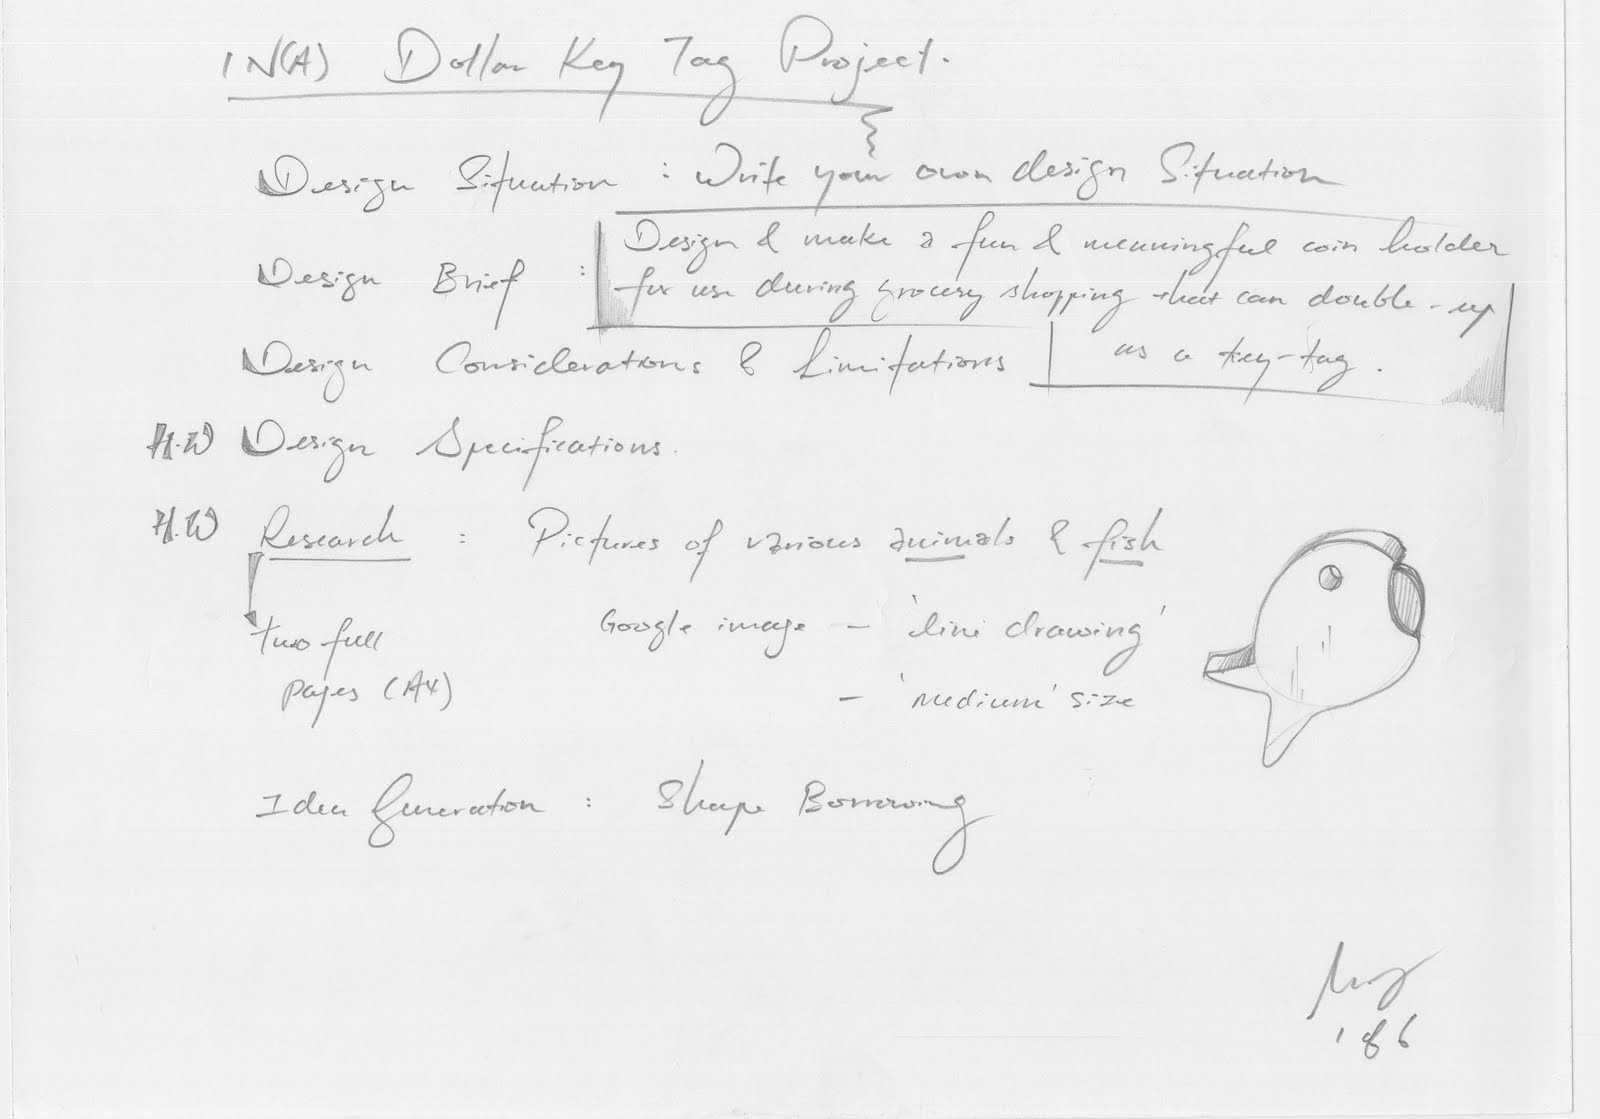 1N(A) Dollar Key Tag Project.
Design Situation : Write your own design Situation
Design Brief : Design & make a fun & meaningful coin holder
for use during grocery shopping that can double-up
as a key-tag.
Design Considerations & Limitations
H.W Design Specifications.
H.W Research : Pictures of various animals & fish
two full
pages (A4)
Google image - 'line drawing'
- 'medium' size
Idea Generation : Shape Borrowing
1 of 6